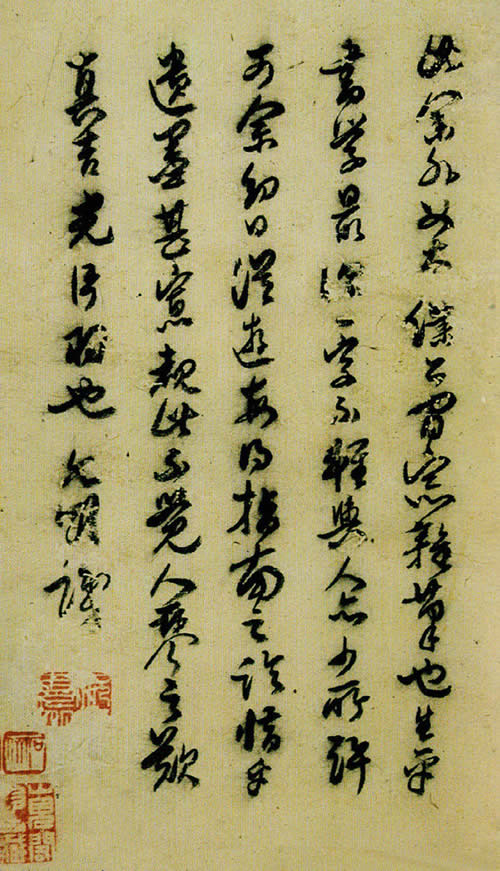 此余外舅太僕公窗雜筆也生平
書學最深一字不輕與人亦少所許
可余幼日從遊每得指南之論惜乎
遺墨甚寡觀此不覺人琴之歎
真吉光片羽也允明識